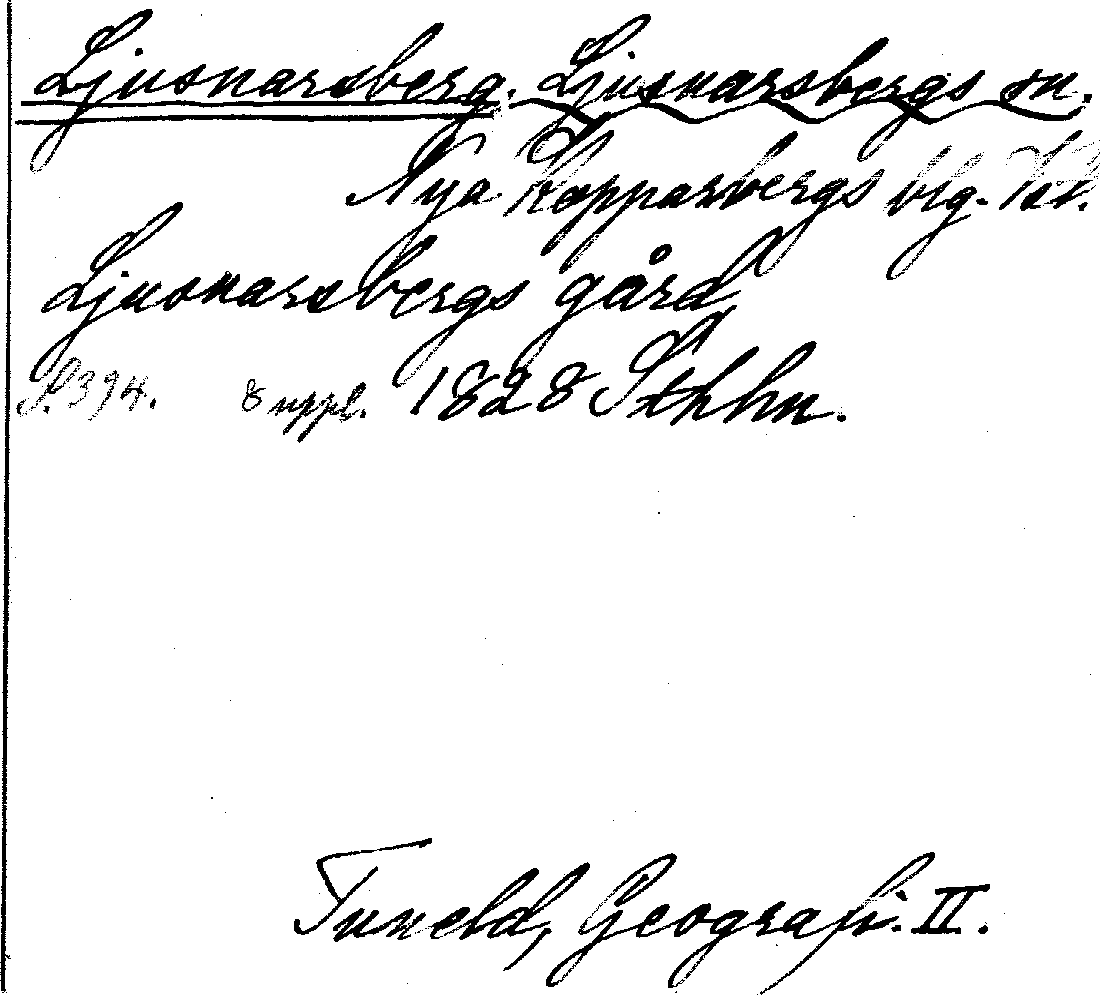 Ljusnarsberg. Ljusnarsbergs sn.
Nya Kopparbergs blg.
Ljusnarsbergs gård
S. 394. 8 uppl. 1828 Sthhm.
Tuneld, Geografi. II.